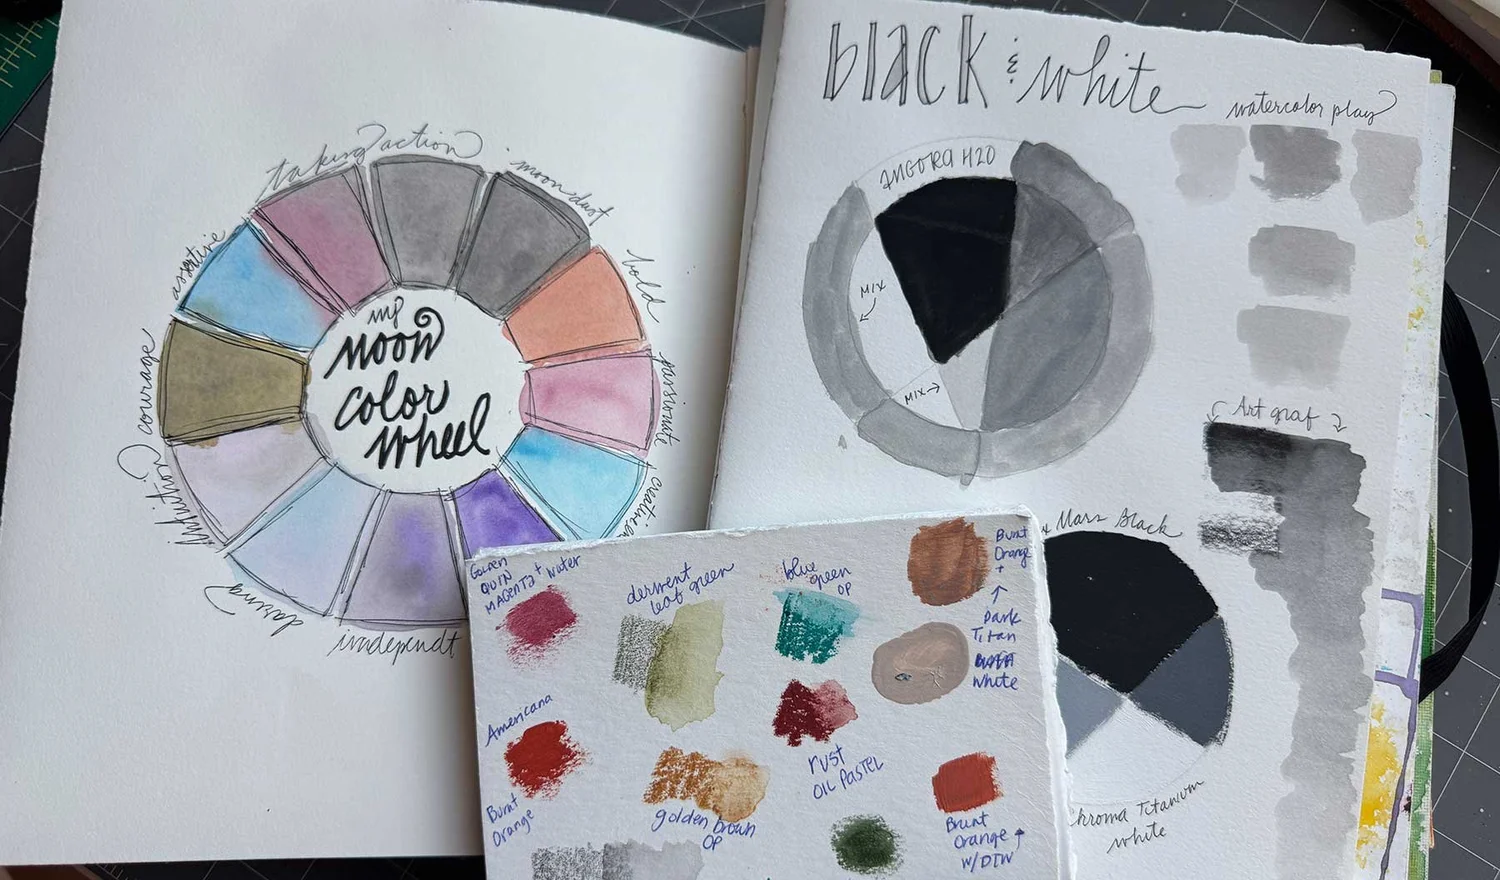 taking action
moon dust
bold
passionate
creative
independt
passing
intuition
courage
assertive
my
moon
color
wheel
black & white
watercolor play
ANGORA H2O
MIX
MIX
Art graf
Mars Black
chroma Titanium
white
GOLDEN
QUIN
MAGENTA + water
derwent
leaf green
blue
green
OP
Burnt
Orange
+
Dark
Titan
white
Americana
Burnt
Orange
golden brown
OP
rust
OIL PASTEL
Burnt
Orange
W/DTW